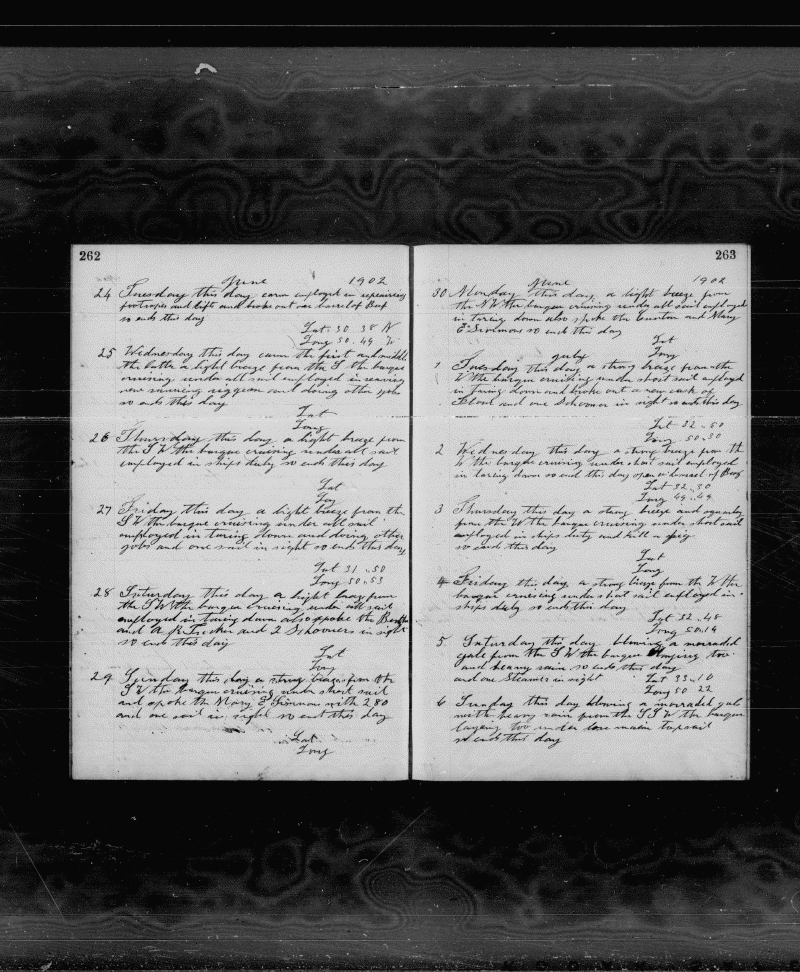 262
June 1902
24 Tuesday this day calm employed in repairing
footropes and lifts and broke out one barrel of Beef
so ends this day
Lat 30 38 N
Long 50 49 W
25 Wednesday this day calm the first and middle
the latter a light breeze from the S the barque
cruising under all sail employed in reeving
new running riggen and doing other jobs
so ends this day
Lat
Long
26 Thursday this day a light breze from
the S W the barque cruising under all sail
employed in ships duty so ends this day
Lat
Log
27 Friday this day a light breeze from the
S W the barque cruising under all sail
employed in taring down and doing other
jobs and one sail in sight so ends this day
Lat 31 - 50
Long 50 - 53
28 Saturday this day a light breze from
the S W the barque cruising under all sail
employed in taring down also spoke the
and A R Tucker and 2 Schooners in sight
so ends this day
Lat
Long
29 Sunday this day a strong breze from the
S W the barque cruising under short sail
and spoke the Mary E Simmons with 280
and one sail in sight so ends this day
Lat
Long
263
June 1902
30 Monday this day a light breeze from
the N W the barque cruising under all sail employed
in taring down also spoke the and Mary
E Simmons so ends this day
Lat
Long
July
1 Tuesday this day a strong breaze from the
W the barque cruising under short sail employed
in taring down and broke out a new cask of
Flour and one Schooner in sight so ends this day
Lat 32 - 50
Long 50 - 30
2 Wednesday this day a strong breze from the
W the barque cruising under short sail employed
in taring down so ends this day open a barrel of Beef
Lat 32 - 30
Long 49 - 49
3 Thursday this day a strong breeze and squally
from the W the barque cruising under short sail
employed in ships duty and kill a pig
so ends this day
Lat
Long
4 Friday this day a strong breze from the W the
barque cruising under short sail employed in
ships duty so ends this day
Lat 32 - 48
Long 50 14
5 Saturday this day blowing a
gale from the S W the barque laying too
and heavy rain so ends this day
and one Steamer in sight Lat 33 - 10
Long 50 22
6 Sunday this day blowing a gale
with heavy rain from the S S W the barque
laying too under lore main topsail
so ends this day